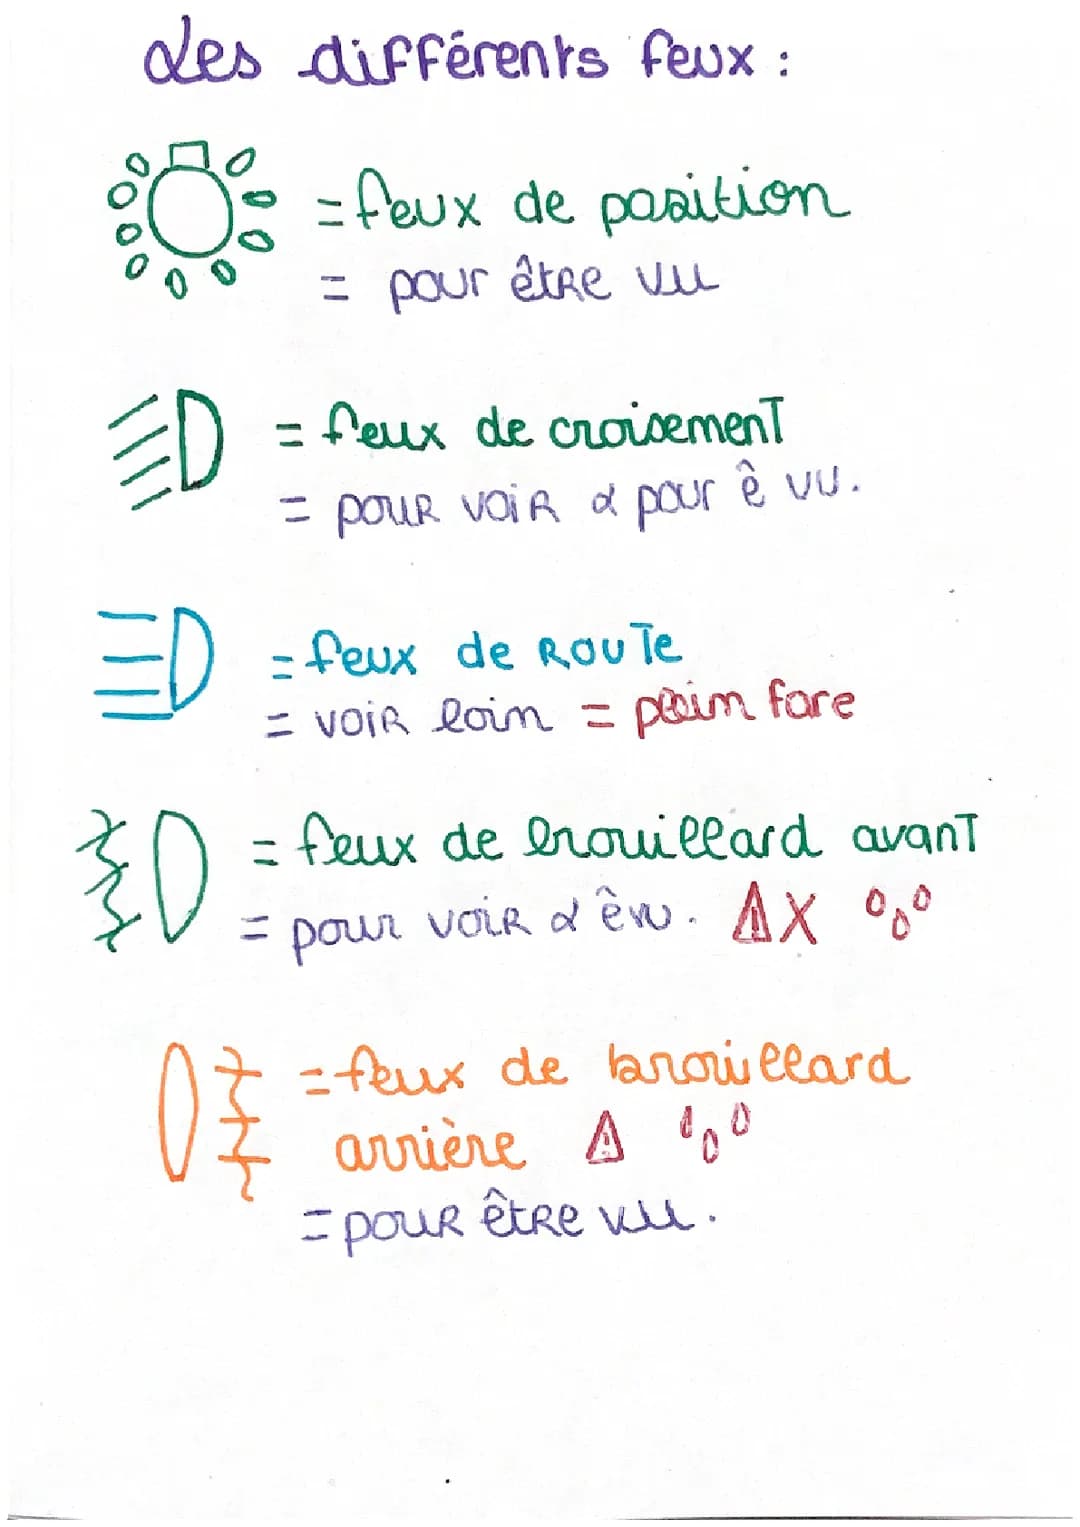 Les différents feux :
= feux de position
= pour être vu
= feux de croisement
= pour voir & pour ê vu.
= feux de route
= voir loin = plein fare
= feux de brouillard avant
= pour voir & ê vu. ⚠ X
= feux de brouillard
arrière ⚠
= pour être vu.